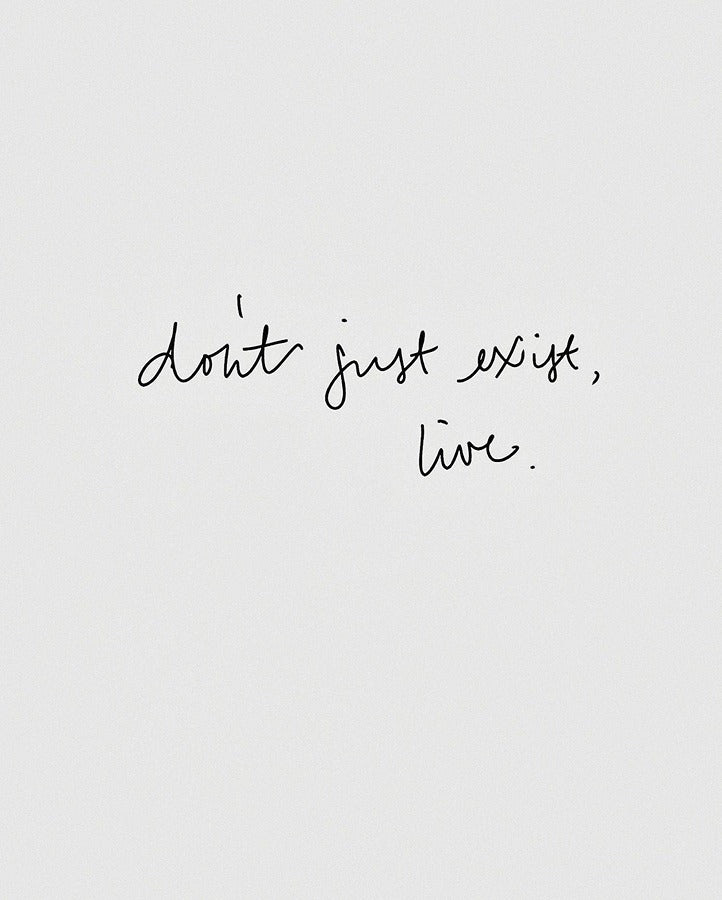 don't just exist,
live.